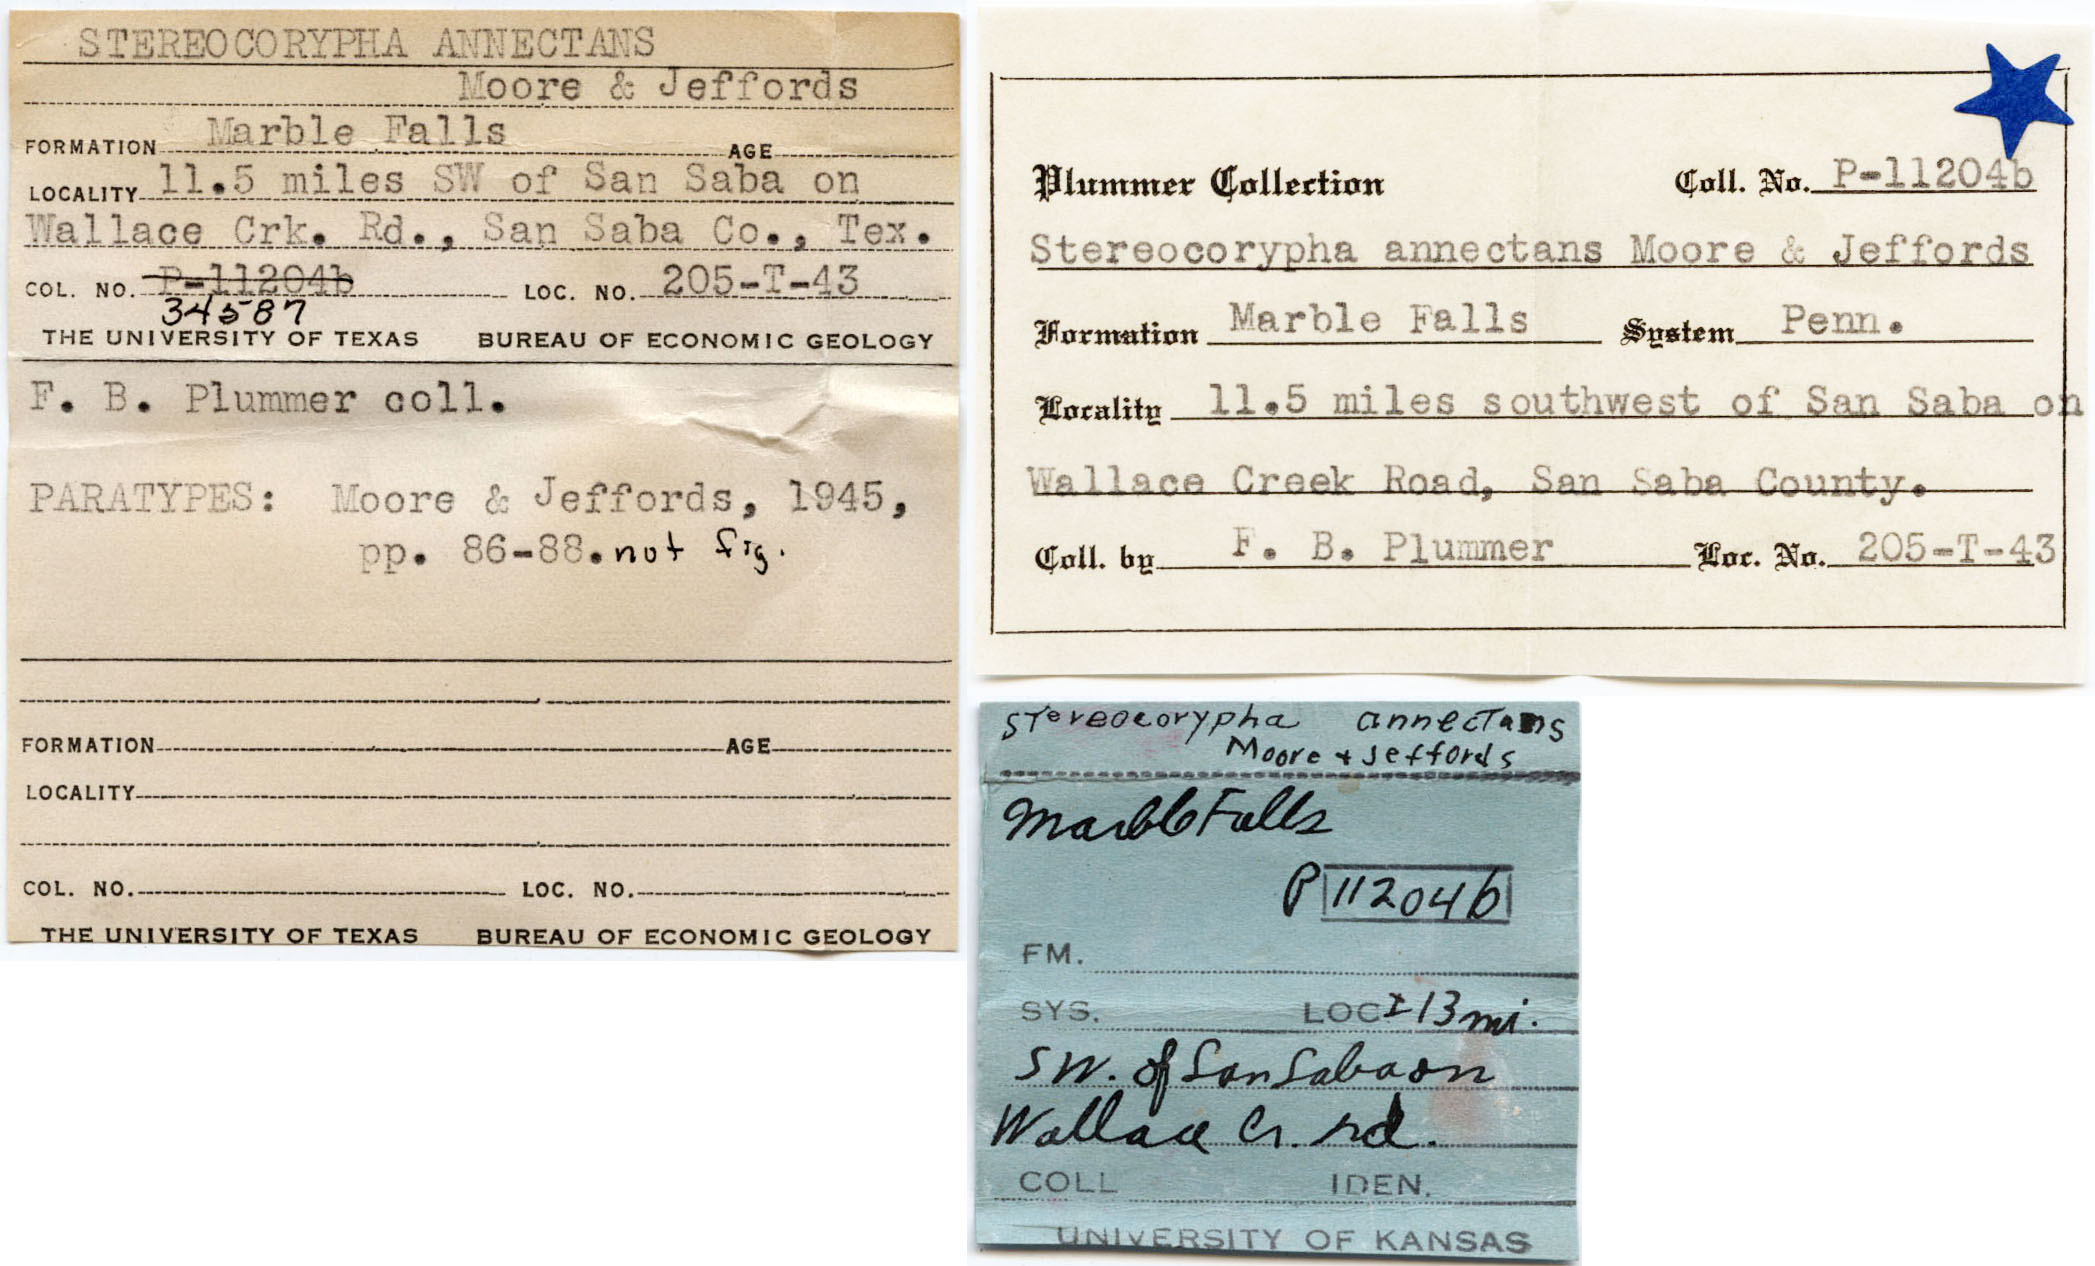 STEREOCORYPHA ANNECTANS
Moore & Jeffords
FORMATION Marble Falls AGE
LOCALITY 11.5 miles SW of San Saba on
Wallace Crk. Rd., San Saba Co., Tex.
COL. NO. P-11204b LOC. NO. 205-T-43
34587
THE UNIVERSITY OF TEXAS BUREAU OF ECONOMIC GEOLOGY
F. B. Plummer coll.
PARATYPES: Moore & Jeffords, 1945,
pp. 86-88. not fig.
FORMATION AGE
LOCALITY
COL. NO. LOC. NO.
THE UNIVERSITY OF TEXAS BUREAU OF ECONOMIC GEOLOGY
Plummer Collection Coll. No. P-11204b
Stereocorypha annectans Moore & Jeffords
Formation Marble Falls System Penn.
Locality 11.5 miles southwest of San Saba on
Wallace Creek Road, San Saba County.
Coll. by F. B. Plummer Loc. No. 205-T-43
Stereocorypha annectans
Moore + Jeffords
Marble Falls
P 11204b
FM.
SYS. LOC ± 13 mi.
SW. of San Saba on
Wallace Cr. rd.
COLL IDEN.
UNIVERSITY OF KANSAS